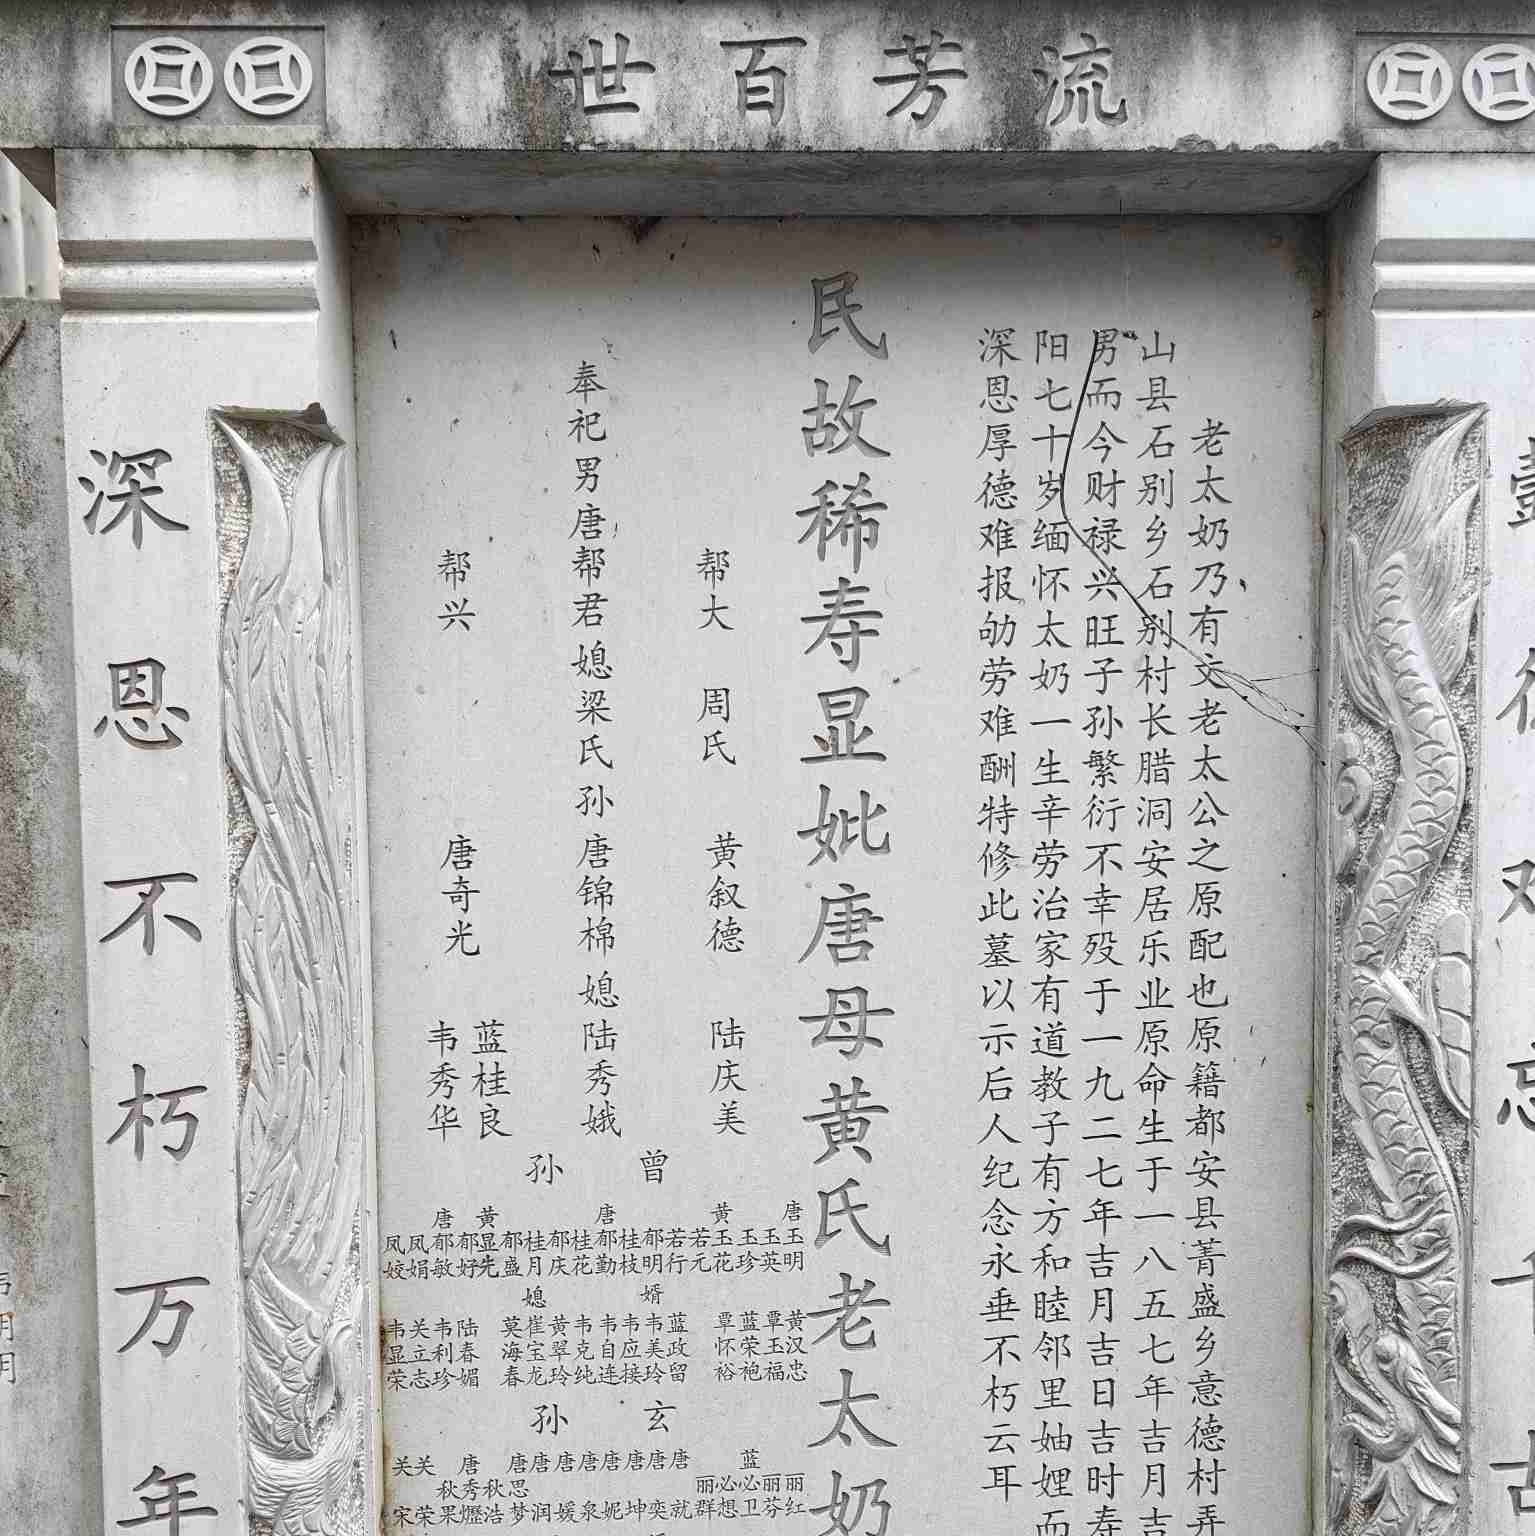 流芳百世
老太奶乃有文老太公之原配也原籍都安县菁盛乡意德村弄
山县石别乡石别村长腊洞安居乐业原命生于一八五七年吉月吉
男而今财禄兴旺子孙繁衍不幸殁于一九二七年吉月吉日吉时寿
阳七十岁缅怀太奶一生辛劳治家有道教子有方和睦邻里妯娌而
深恩厚德难报劬劳难酬特修此墓以示后人纪念永垂不朽云耳
民故稀寿显妣唐母黄氏老太奶
帮大 周氏 黄叙德 陆庆美
奉祀男唐帮君媳梁氏孙唐锦棉媳陆秀娥
帮兴 唐奇光 蓝桂良
韦秀华
曾孙
唐玉明
玉英
玉珍
黄玉花
若元
若行
郁明
桂枝
唐郁勤
桂花
郁庆
桂月
郁盛
黄显先
郁好
唐郁敏
凤娟
凤姣
婿
黄汉忠
覃玉福
蓝荣袍
覃怀裕
蓝政留
韦美玲
韦应接
韦自连
韦克纯
黄翠玲
崔宝龙
莫海春
媳
陆春媚
韦利珍
关立志
韦显荣
玄孙
丽红
丽芬
蓝必卫
必想
丽群
唐就
唐奕
唐坤
唐妮
唐泉
唐媛
唐润
唐思梦
秋浩
唐秀
秋果
关荣
关宋
深恩不朽万年